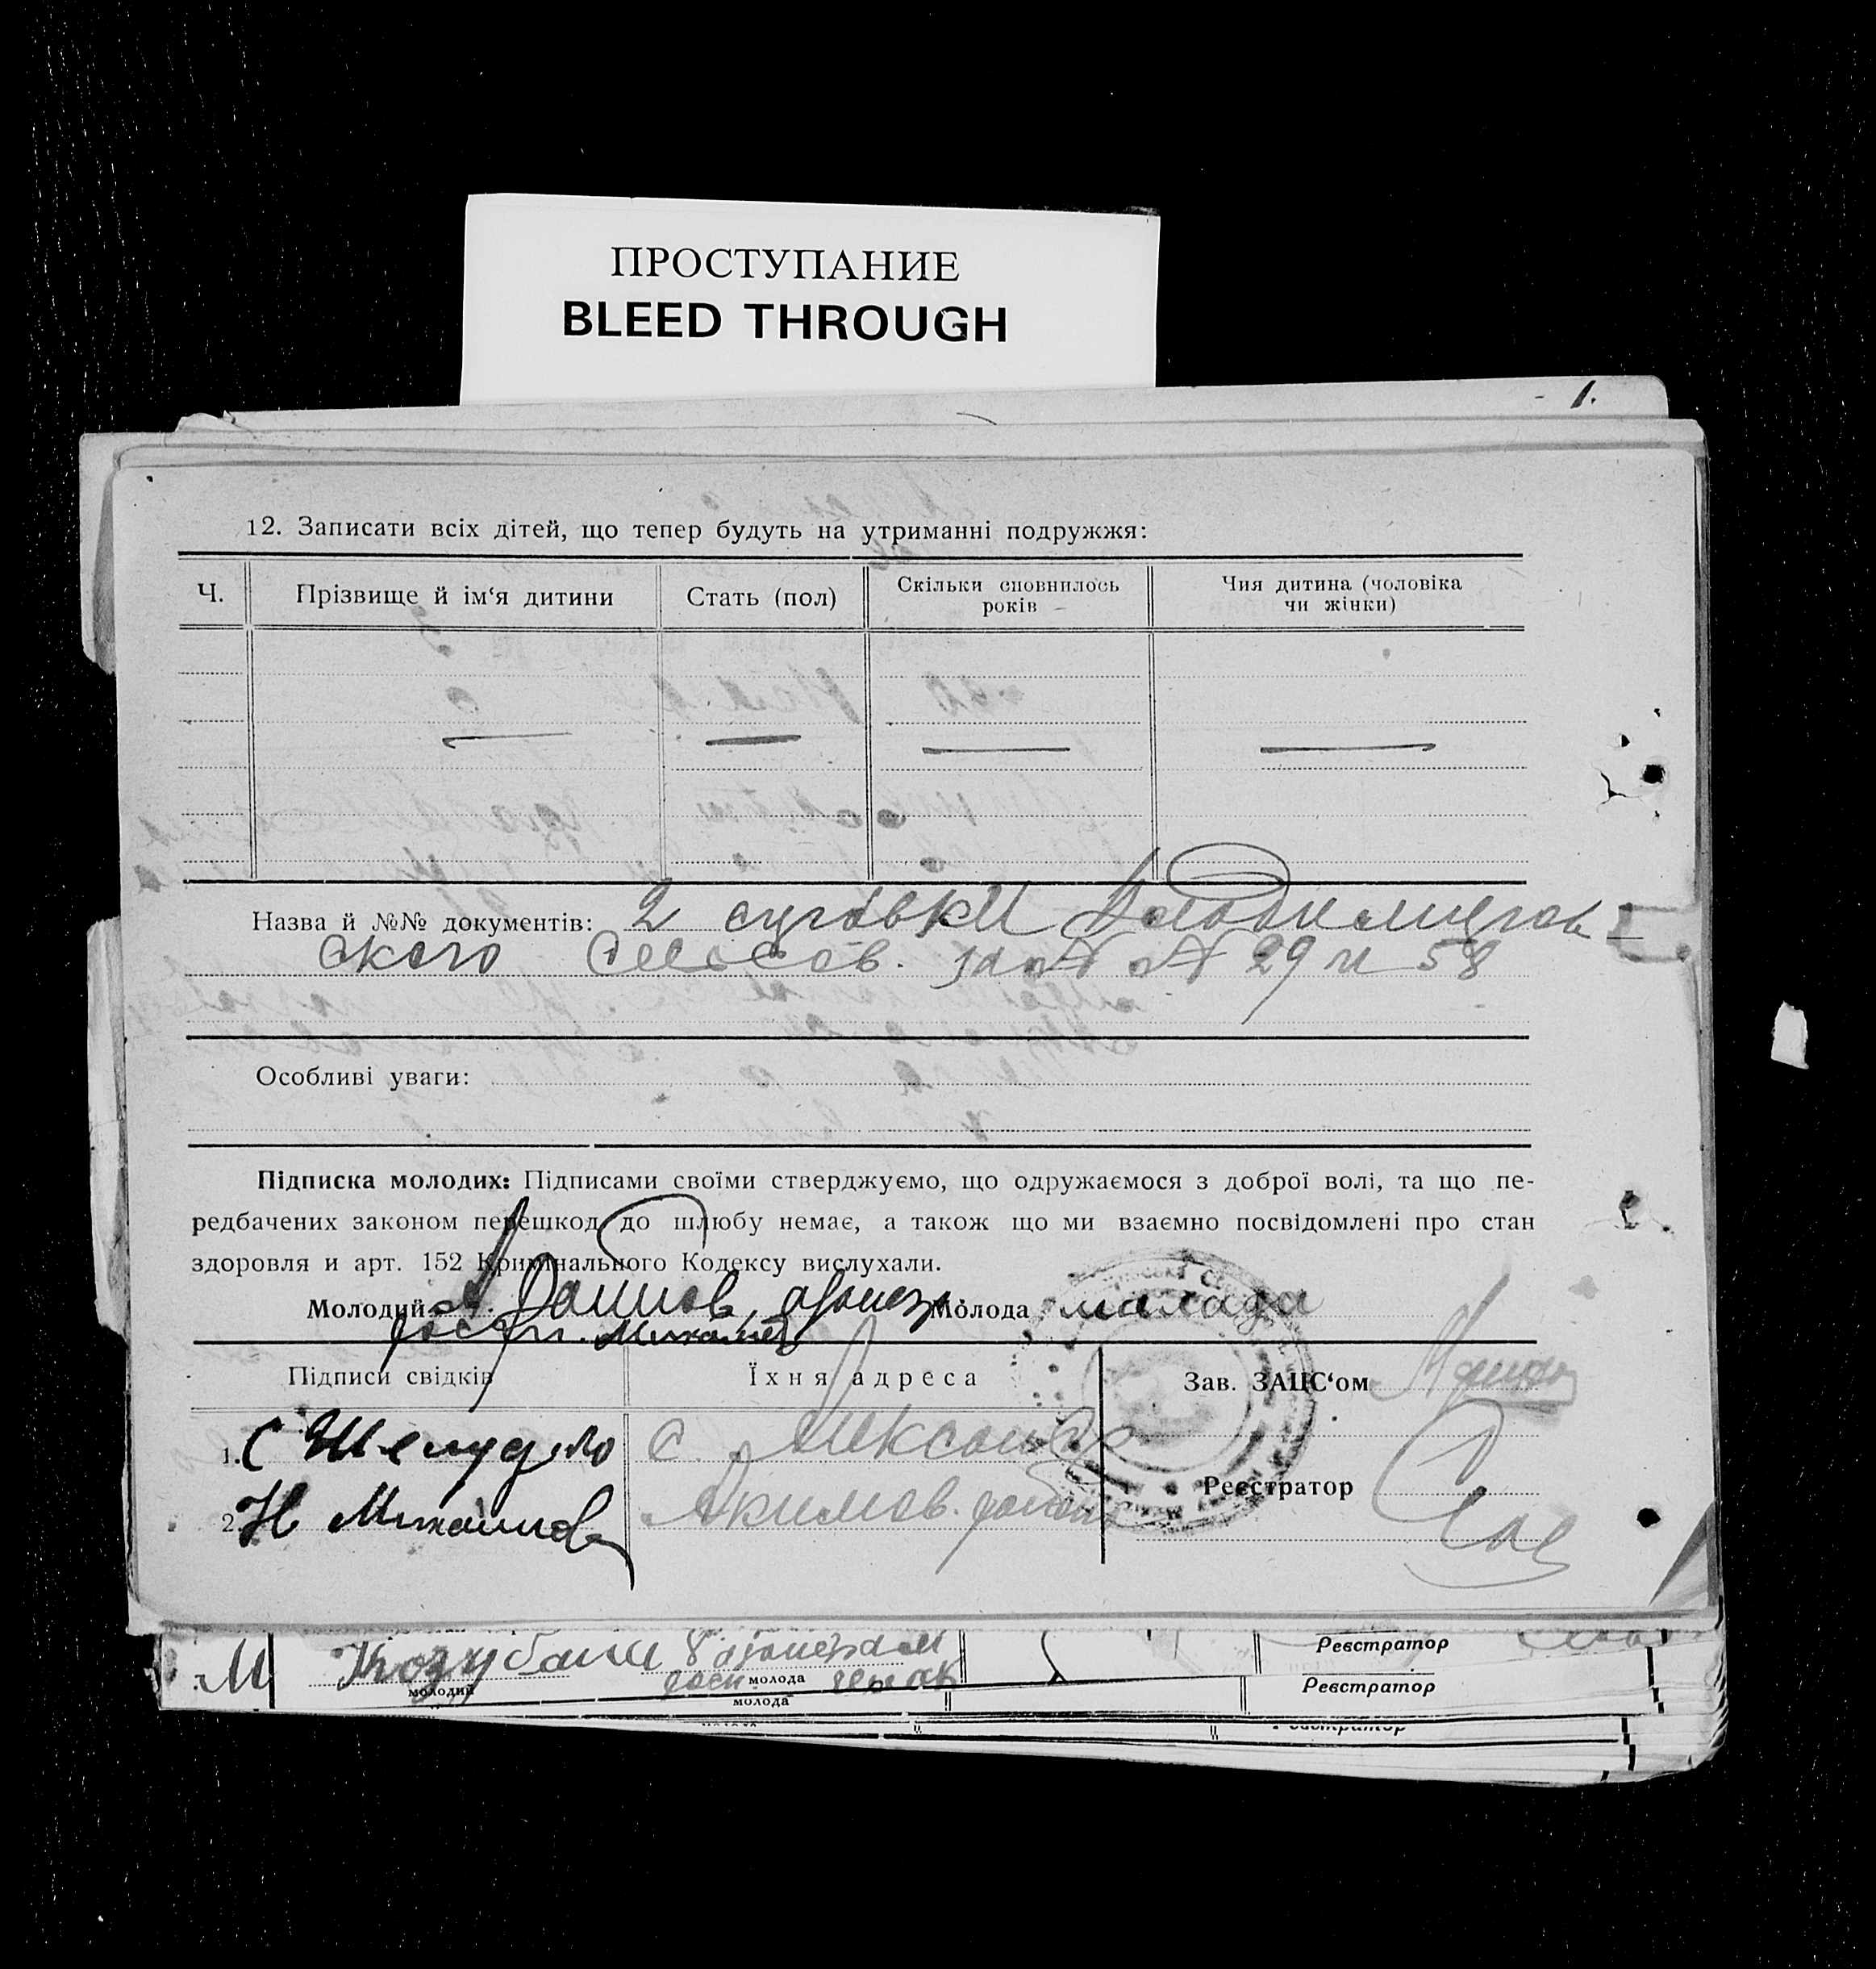 ПРОСТУПАНИЕ
BLEED THROUGH
1.
12. Записати всіх дітей, що тепер будуть на утриманні подружжя:
Ч.
Прізвище й ім‘я дитини
Стать (пол)
Скільки сповнилось
років
Чия дитина (чоловіка
чи жінки)
Назва й №№ документів: 2
ского за № № 29 и 58
Особливі уваги:
Підписка молодих: Підписами своїми стверджуємо, що одружаємося з доброї волі, та що пе-
редбачених законом перешкод до шлюбу немає, а також що ми взаємно посвідомлені про стан
здоровля и арт. 152 Криминального Кодексу вислухали.
Молодий
Молода
Підписи свідків
Їхня адреса
Зав. ЗАЦС‘ом
1. С Шелудько
с.
2. Н Михайлов
Акимов. район
Реєстратор
М
Козубаш
молодий
молода
Реєстратор
молода
Реєстратор